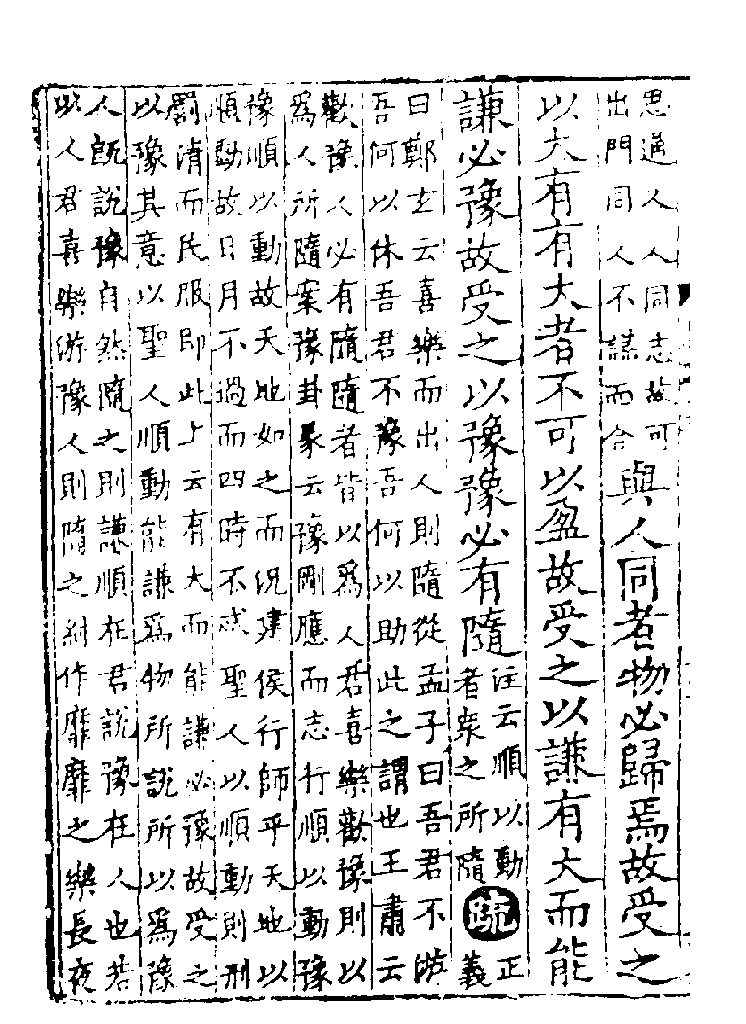 思通人人同志故可
出門同人不謀而合
與人同者物必歸焉故受之
以大有有大者不可以盈故受之以謙有大而能
謙必豫故受之以豫豫必有隨
注云順以動
者衆之所隨
疏
正
義
曰鄭玄云喜樂而出人則隨從孟子曰吾君不游
吾何以休吾君不豫吾何以助此之謂也王肅云
歡豫人必有隨隨者皆以爲人君喜樂歡豫則以
爲人所隨案豫卦彖云豫剛應而志行順以動豫
豫順以動故天地如之而況建侯行師乎天地以
順動故日月不過而四時不忒聖人以順動則刑
罰清而民服即此上云有大而能謙必豫故受之
以豫其意以聖人順動能謙爲物所說所以爲豫
人既說豫自然隨之則謙順在君說豫在人也若
以人君喜樂游豫人則隨之紂作靡靡之樂長夜